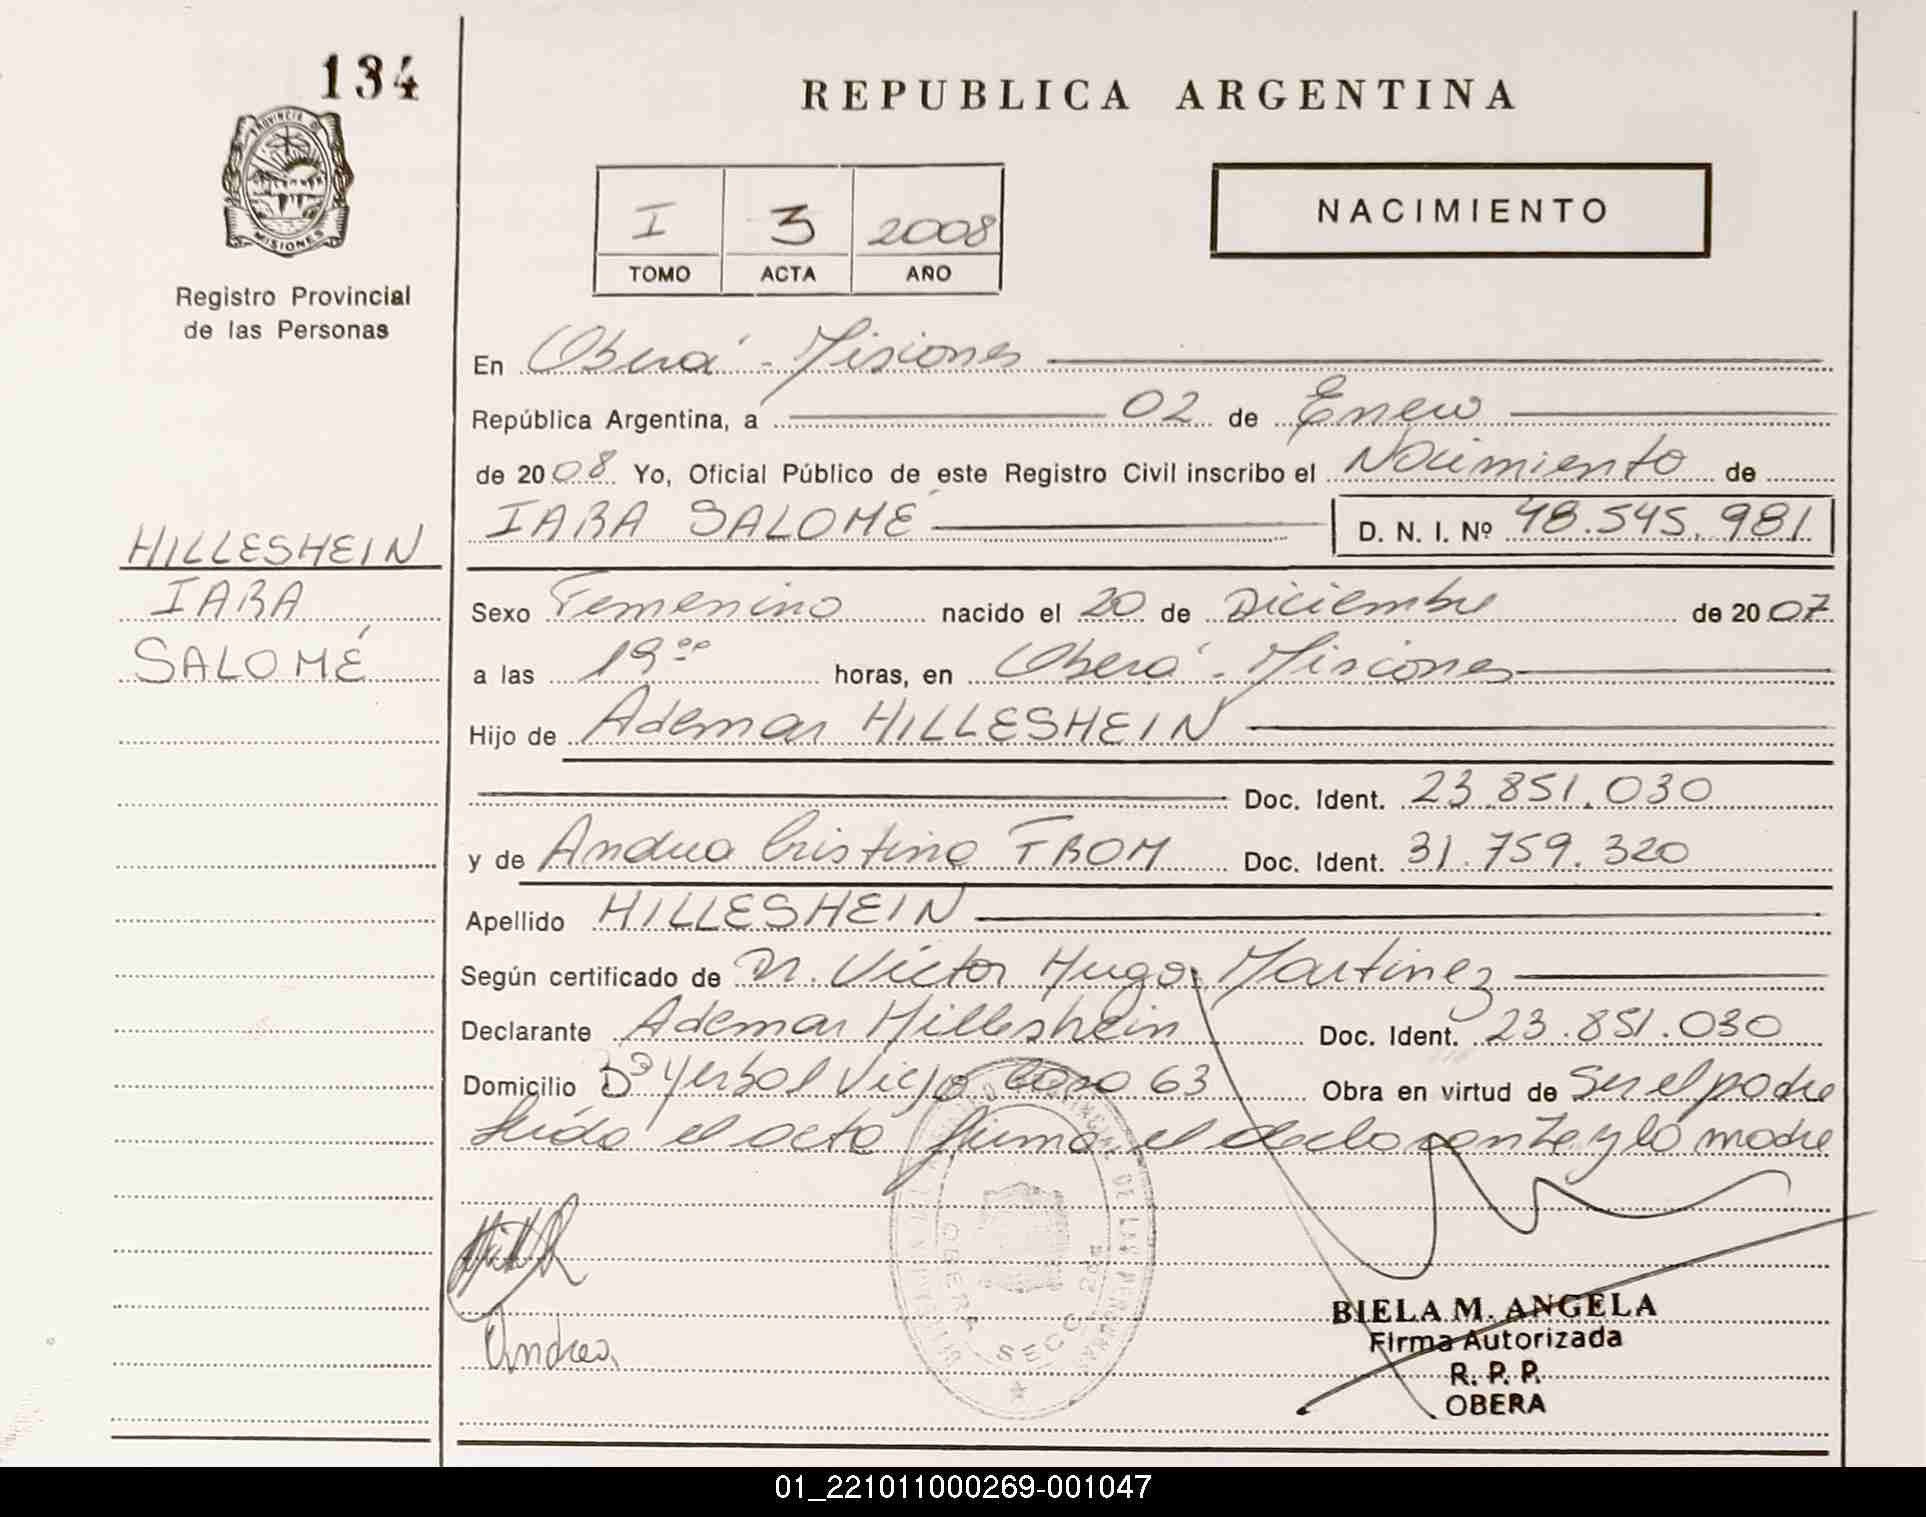 134
PROVINCIA DE
MISIONES
Registro Provincial
de las Personas
HILLESHEIN
IARA
SALOMÉ
REPUBLICA ARGENTINA
I 3 2008
TOMO ACTA AÑO
NACIMIENTO
En Oberá - Misiones
República Argentina, a 02 de Enero
de 2008 Yo, Oficial Público de este Registro Civil inscribo el Nacimiento de
IARA SALOMÉ D. N. I. Nº 48.545.981
Sexo Femenino nacido el 20 de Diciembre de 2007
a las 19 oo horas, en Oberá - Misiones
Hijo de Ademar HILLESHEIN
Doc. Ident. 23.851.030
y de Andrea Cristina FROM Doc. Ident. 31.759.320
Apellido HILLESHEIN
Según certificado de Dr. Víctor Hugo Martinez
Declarante Ademar Hilleshein Doc. Ident. 23.851.030
Domicilio Bº Yerbal Viejo Casa 63 Obra en virtud de Ser el padre
Leída el acta firma el declarante y la madre
Andrea
OBERA SECC 2da
BIELA M. ANGELA
Firma Autorizada
R. P. P.
OBERA
01_221011000269-001047